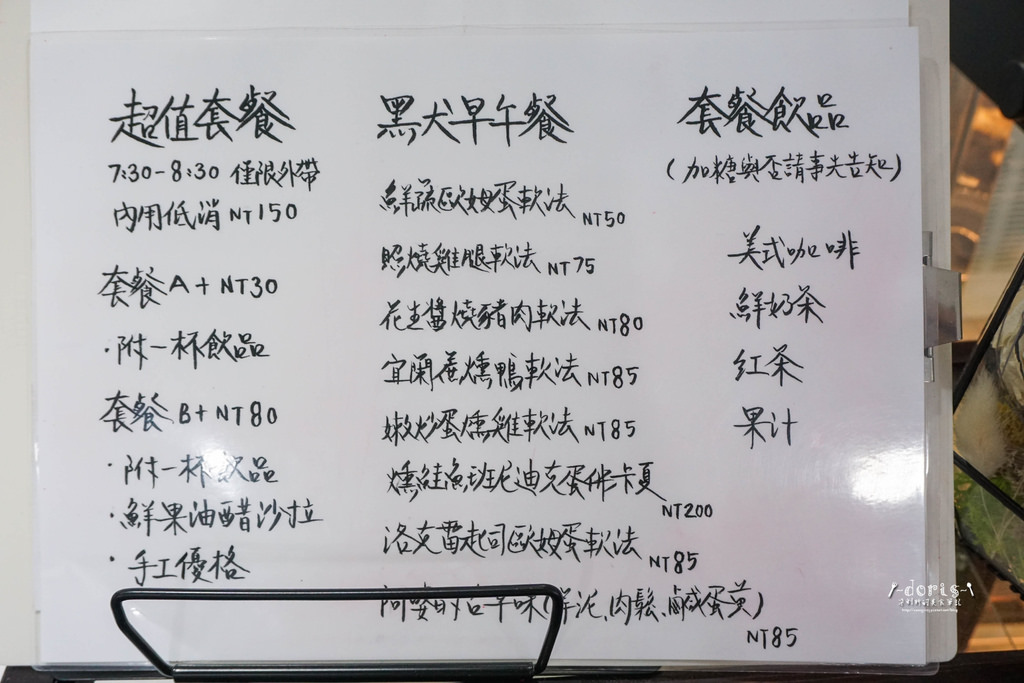 超值套餐
7:30-8:30 僅限外帶
內用低消 NT150
套餐 A + NT30
·附一杯飲品
套餐 B + NT80
·附一杯飲品
·鮮果油醋沙拉
·手工優格
黑犬早午餐
鮮蔬歐姆蛋軟法 NT50
照燒雞腿軟法 NT75
花生醬燒豬肉軟法 NT80
宜蘭蔥燻鴨軟法 NT85
嫩炒蛋燻雞軟法 NT85
燻鮭魚班尼迪克蛋佛卡夏
NT200
洛克雷起司歐姆蛋軟法 NT85
阿婆的古早味(芋泥、肉鬆、鹹蛋黃)
NT85
套餐飲品
(加糖與否請事先告知)
美式咖啡
鮮奶茶
紅茶
果汁
doris